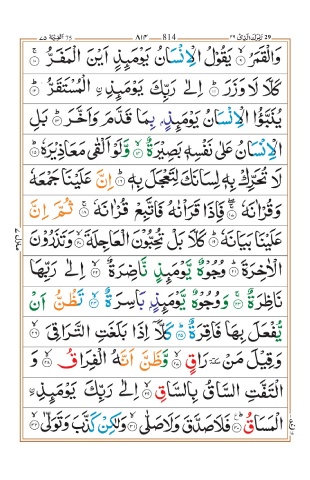 تبٰرك الذى ٢٩ 814 ٨١٤ القيٰمة ٧٥
وَالْقَمَرُ ۙ﴿٩﴾ يَقُوْلُ الْاِنْسَانُ يَوْمَىِٕذٍ اَيْنَ الْمَفَرُّ ۚ﴿١٠﴾
كَلَّا لَا وَزَرَ ؕ﴿١١﴾ اِلٰى رَبِّكَ يَوْمَىِٕذِ ۨالْمُسْتَقَرُّ ؕ﴿١٢﴾
يُنَبَّؤُا الْاِنْسَانُ يَوْمَىِٕذٍۭ بِمَا قَدَّمَ وَاَخَّرَ ؕ﴿١٣﴾ بَلِ
الْاِنْسَانُ عَلٰى نَفْسِهٖ بَصِيْرَةٌ ۙ﴿١٤﴾ وَّلَوْ اَلْقٰى مَعَاذِيْرَهٗ ؕ﴿١٥﴾
لَا تُحَرِّكْ بِهٖ لِسَانَكَ لِتَعْجَلَ بِهٖ ؕ﴿١٦﴾ اِنَّ عَلَيْنَا جَمْعَهٗ
وَقُرْاٰنَهٗ ۚ﴿١٧﴾ فَاِذَا قَرَاْنٰهُ فَاتَّبِعْ قُرْاٰنَهٗ ۚ﴿١٨﴾ ثُمَّ اِنَّ
عَلَيْنَا بَيَانَهٗ ؕ﴿١٩﴾ كَلَّا بَلْ تُحِبُّوْنَ الْعَاجِلَةَ ۙ﴿٢٠﴾ وَتَذَرُوْنَ
الْاٰخِرَةَ ؕ﴿٢١﴾ وُجُوْهٌ يَّوْمَىِٕذٍ نَّاضِرَةٌ ۙ﴿٢٢﴾ اِلٰى رَبِّهَا
نَاظِرَةٌ ۚ﴿٢٣﴾ وَوُجُوْهٌ يَّوْمَىِٕذٍۭ بَاسِرَةٌ ۙ﴿٢٤﴾ تَظُنُّ اَنْ
يُّفْعَلَ بِهَا فَاقِرَةٌ ؕ﴿٢٥﴾ كَلَّاۤ اِذَا بَلَغَتِ التَّرَاقِيَ ۙ﴿٢٦﴾
وَقِيْلَ مَنْ ٚ رَاقٍ ۙ﴿٢٧﴾ وَّظَنَّ اَنَّهُ الْفِرَاقُ ۙ﴿٢٨﴾ وَ
الْتَفَّتِ السَّاقُ بِالسَّاقِ ۙ﴿٢٩﴾ اِلٰى رَبِّكَ يَوْمَىِٕذِ ۨ
الْمَسَاقُ ؕ﴿٣٠﴾ فَلَا صَدَّقَ وَلَا صَلّٰى ۙ﴿٣١﴾ وَلٰكِنْ كَذَّبَ وَتَوَلّٰى ۙ﴿٣٢﴾